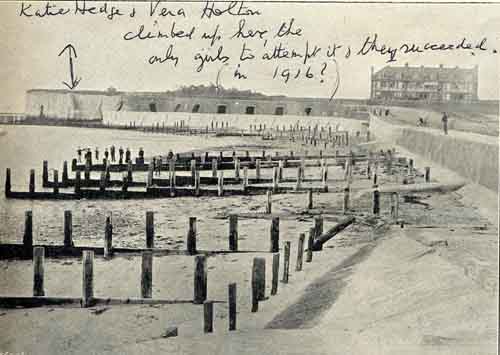 Katie Hedge & Vera Holton
climbed up here, the
only girls to attempt it & they succeeded.
(in 1916?)